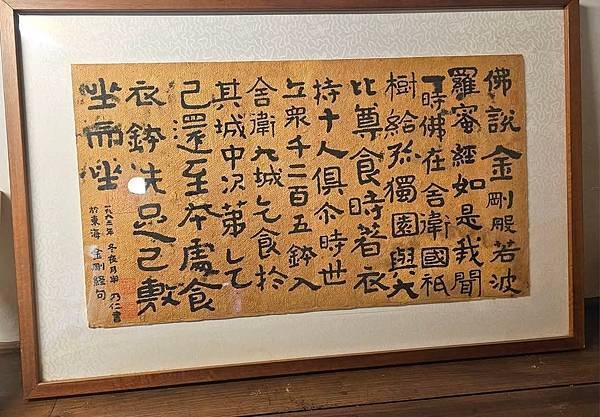 佛說金剛般若波
羅蜜經如是我聞
一時佛在舍衛國祇
樹給孤獨園與大
比尊食時著衣
持十人俱尒時世
丘眾千二百五鉢入
舍衛大城乞食於
其城中次第乞
已還至本處食
衣鉢洗足已敷
坐而坐
一九六二年 冬夜月半 乃仁書
於東海 金剛經句